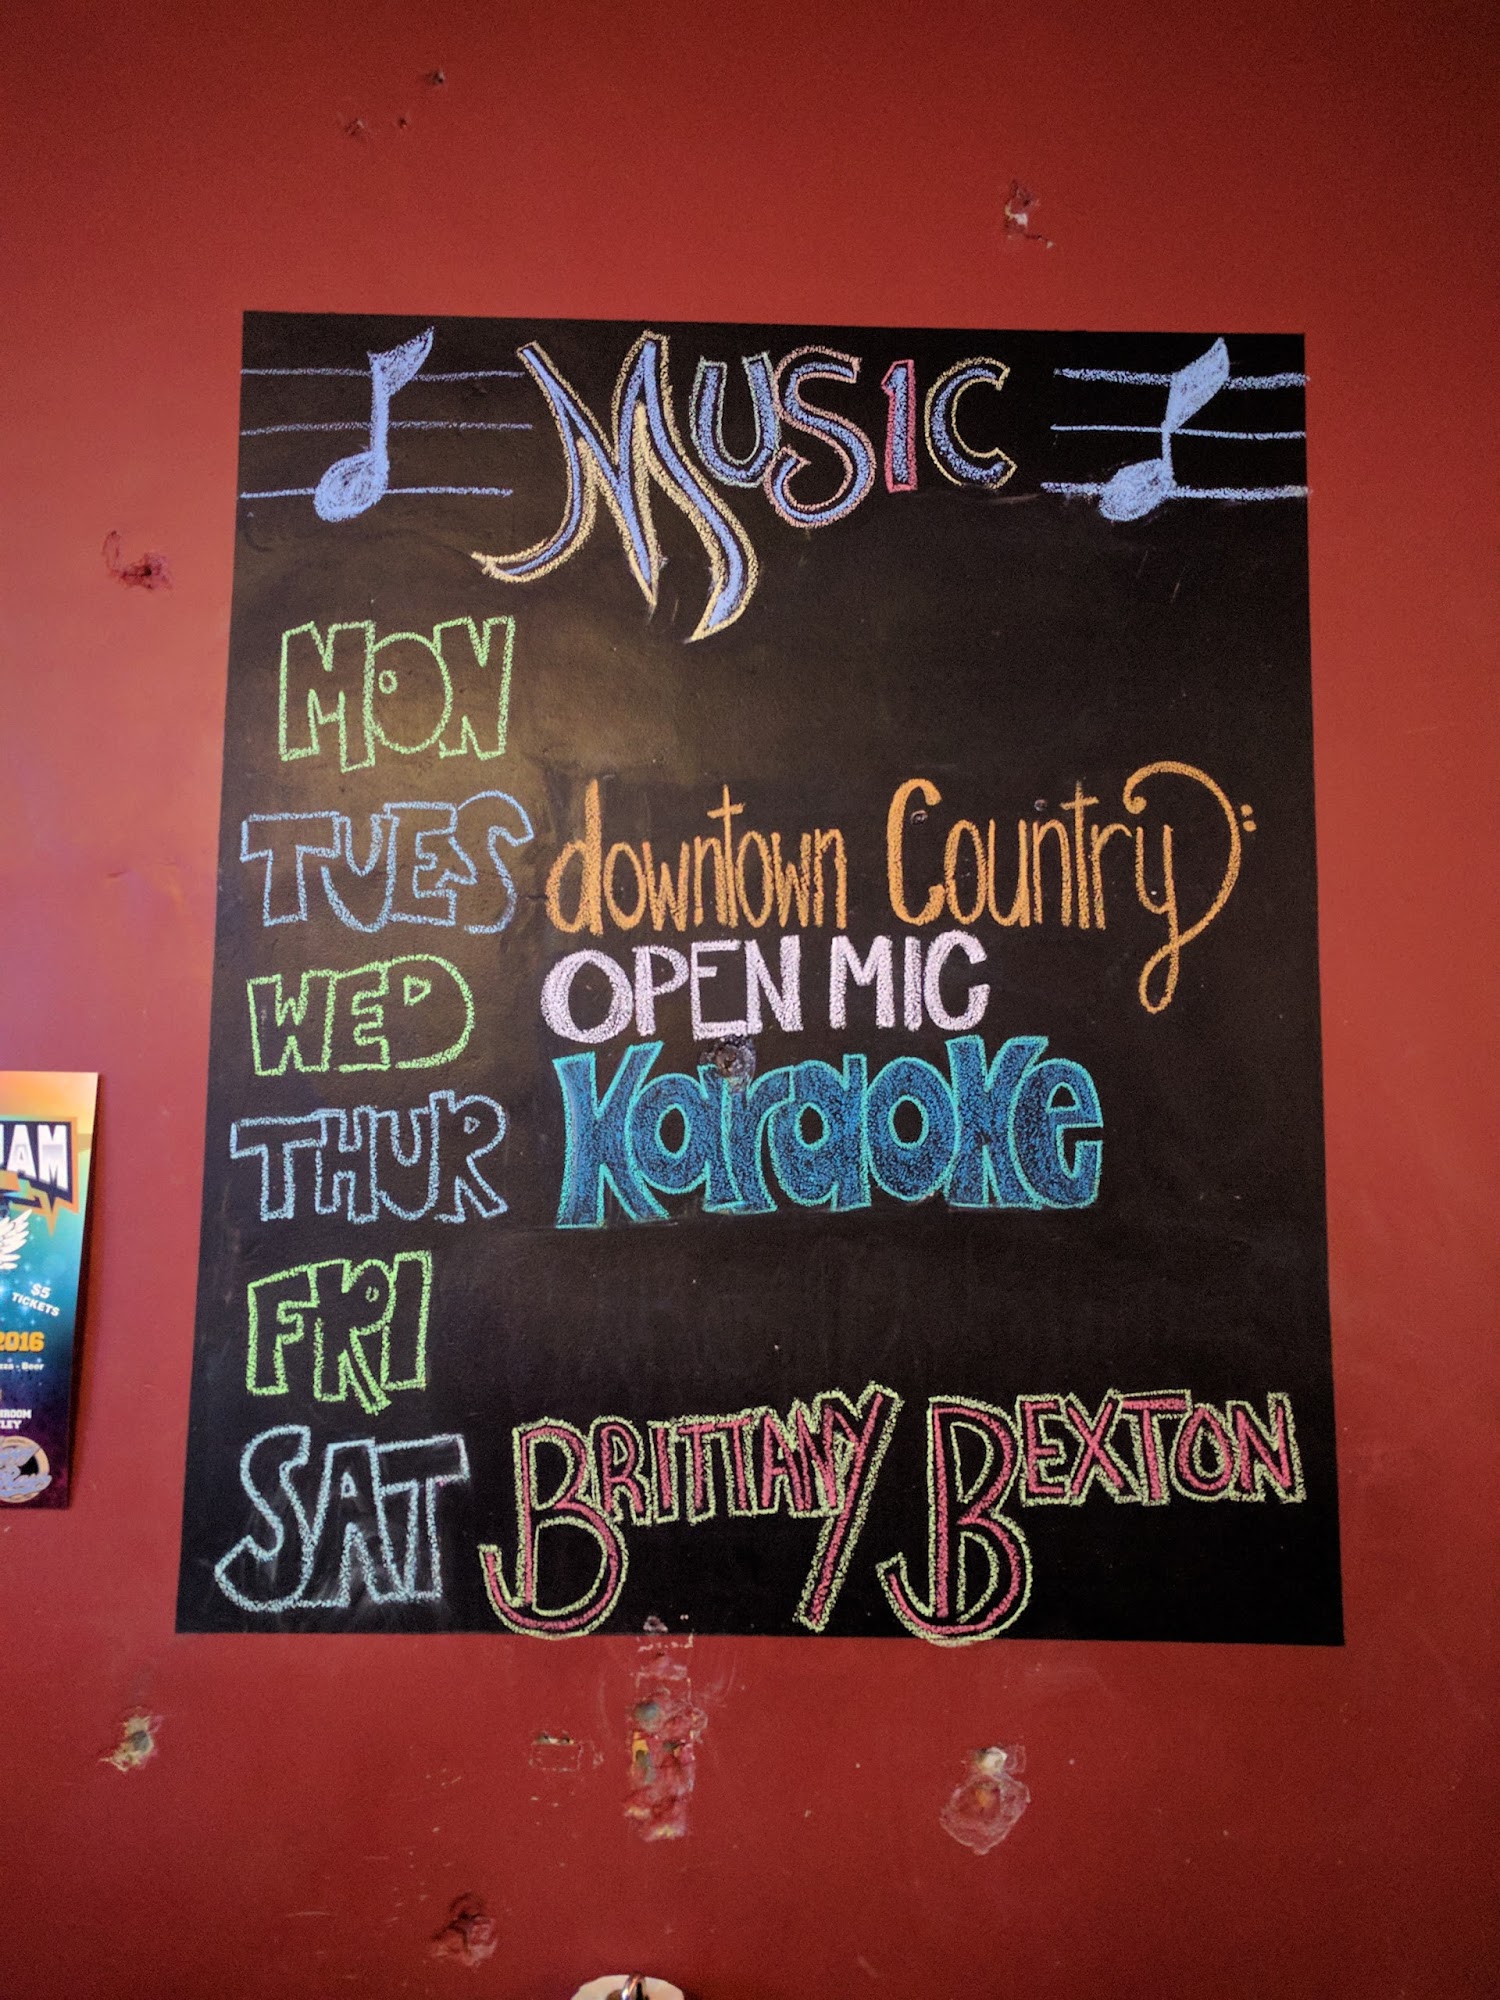 MUSIC
MON
TUES downtown Country
WED OPEN MIC
THUR Karaoke
FRI
SAT BRITTANY BEXTON
AM
$5
TICKETS
2016
Beer